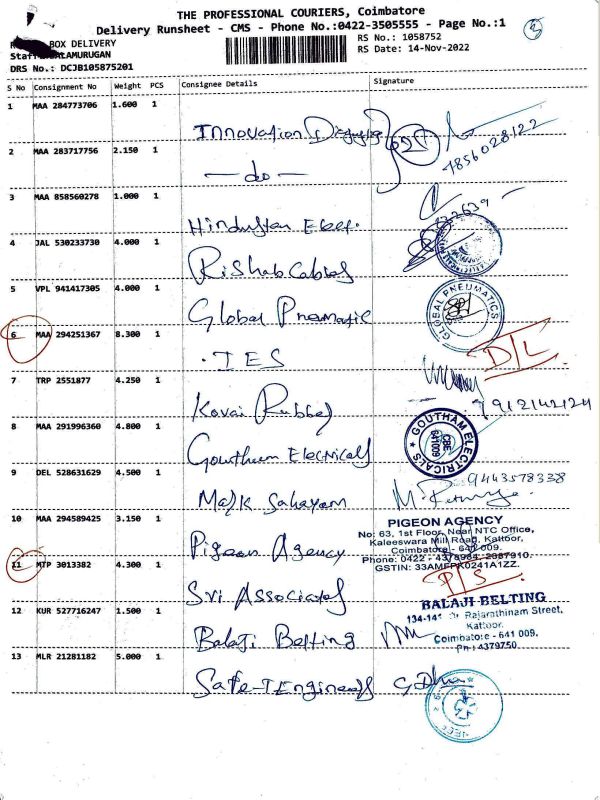 THE PROFESSIONAL COURIERS, Coimbatore
Delivery Runsheet - CMS - Phone No.:0422-3505555 - Page No.:1
BOX DELIVERY
RS No.: 1058752
RS Date: 14-Nov-2022
DRS No.: DCJB105875201
S No Consignment No Weight PCS Consignee Details Signature
1 MAA 284773706 1.600 1
Innovation
7856028122
2 MAA 283717756 2.150 1
— do —
3 MAA 858560278 1.000 1
Hindustan Elect.
4 JAL 530233730 4.000 1
Rishab Cables
5 VPL 941417305 4.000 1
Global Pneumatic
GLOBAL PNEUMATICS
6 MAA 294251367 8.300 1
. IES
D/L
7 TRP 2551877 4.250 1
Kovai Rubber
7912142124
8 MAA 291996360 4.800 1
Goutham Electricals
GOUTHAM ELECTRICALS
CBE
641009
9 DEL 528631629 4.500 1
Majk Sahayam
9443578338
10 MAA 294589425 3.150 1
Pigeon Agency
PIGEON AGENCY
No: 63, 1st Floor, Near NTC Office,
Kaleeswara Mill Road, Kattoor,
Coimbatore - 641 009.
Phone: 0422 -
11 MTP 3013382 4.300 1
Sri Associates
P/S
12 KUR 527716247 1.500 1
Balaji Belting
BALAJI BELTING
Rajarathinam Street,
Kattoor,
Coimbatore - 641 009.
Ph: 4379750
13 MLR 21281182 5.000 1
Safe-T Engineers